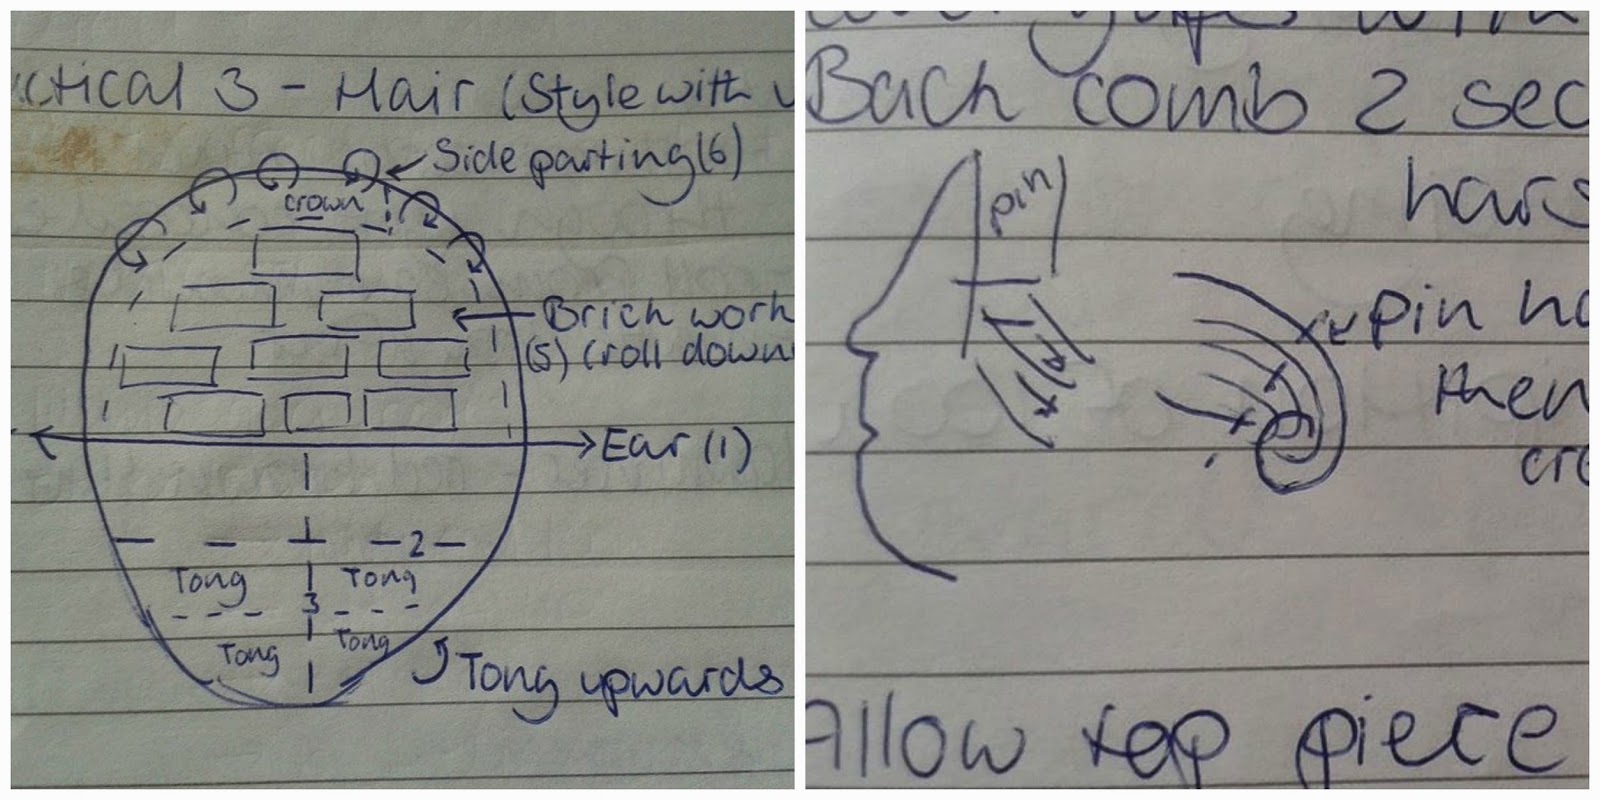 ctical 3 - Hair (Style with
Side parting (6)
crown
Brick work
(5) (roll down
Ear (1)
2
Tong Tong
3
Tong Tong
Tong upwards
with
Back comb 2 sec
hairs
pin
pin ho
then
cre
Allow top piece